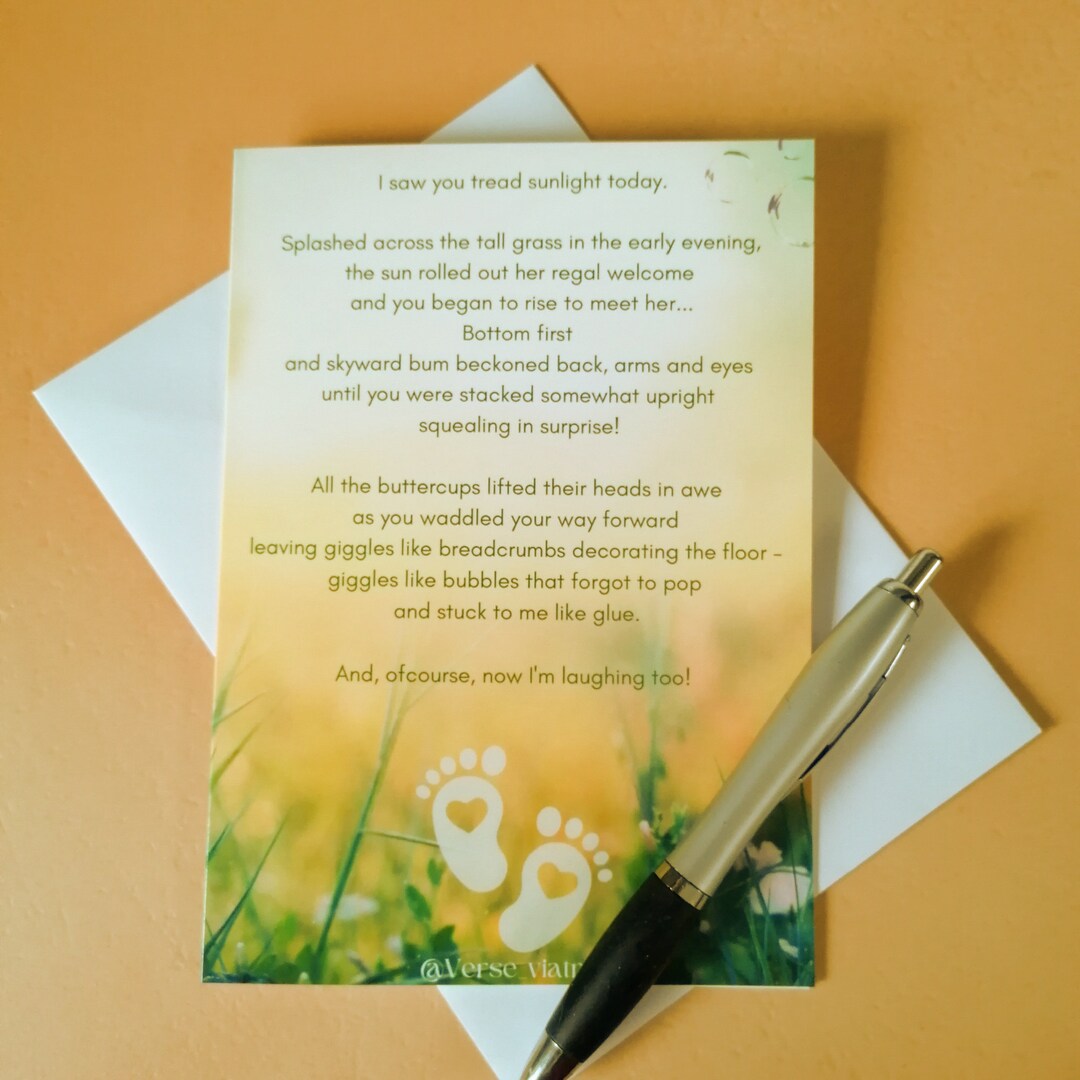 I saw you tread sunlight today.
Splashed across the tall grass in the early evening,
the sun rolled out her regal welcome
and you began to rise to meet her...
Bottom first
and skyward bum beckoned back, arms and eyes
until you were stacked somewhat upright
squealing in surprise!
All the buttercups lifted their heads in awe
as you waddled your way forward
leaving giggles like breadcrumbs decorating the floor -
giggles like bubbles that forgot to pop
and stuck to me like glue.
And, ofcourse, now I'm laughing too!